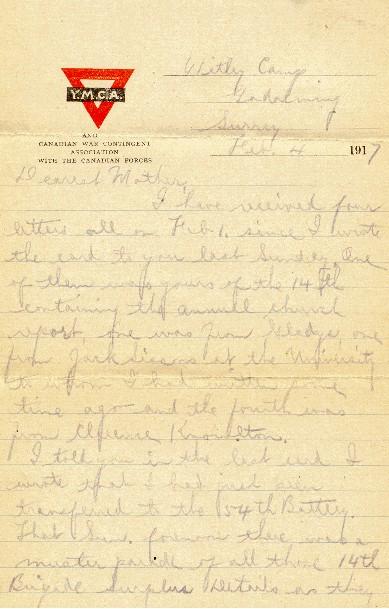 Y.M.C.A.
Witley Camp
Godalming
Surrey
AND
CANADIAN WAR CONTINGENT
ASSOCIATION
WITH THE CANADIAN FORCES
Feb. 4 1917
Dearest Mother,
I have received four
letters all on Feb 1. since I wrote
the card to you last Sunday. One
of them was yours of the 14th
containing the annual church
report, one was from Gladys, one
from Jack at the University
to whom I had written some
time ago and the fourth was
from Clarence Knowlton.
I told you in the last card I
wrote that I had just been
transferred to the 54th Battery.
That Sun. forenoon there was a
muster parade of all those 14th
Brigade surplus details as they